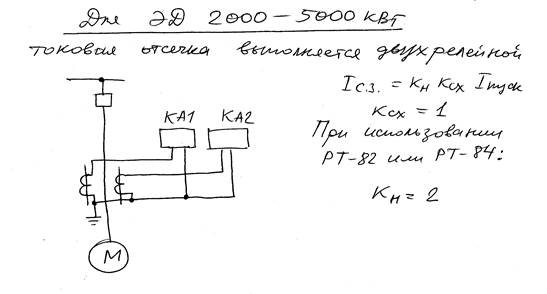 Для ЭД 2000 – 5000 кВт
токовая отсечка выполняется двухрелейной
Iс.з. = Kн Kсх Iпуск
Kсх = 1
При использовании
РТ-82 или РТ-84:
Kн = 2
KA1 KA2
М